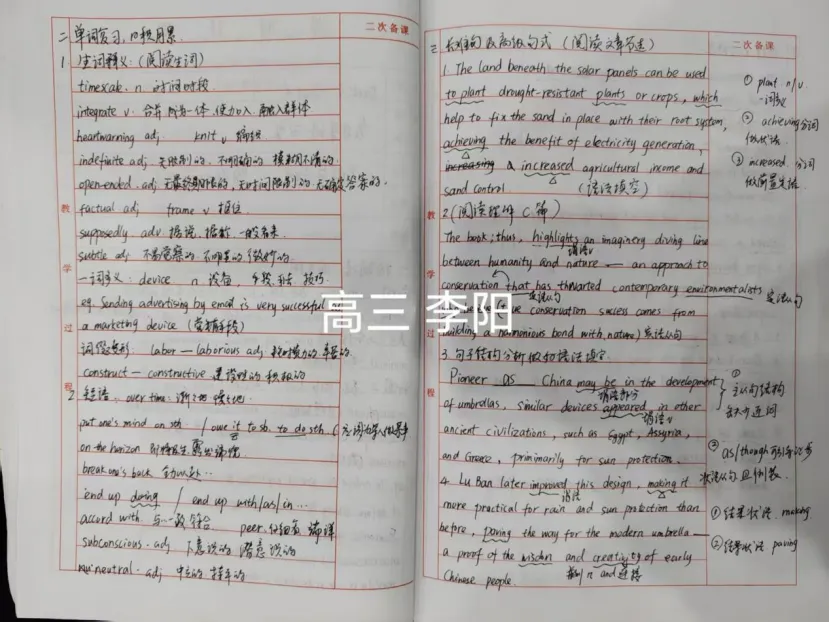 二次备课
二 单词复习,
1. 生词释义:(阅读生词)
timescale. n. 时间段
integrate v. 合并 成为一体, 使加入 融入群体
heartwarming adj. knit v. 编织
indefinite adj. 无限期的. 不明确的 模糊不清的.
open-ended. adj. 无时间限制的. 无确定答案的.
factual adj frame v
supposedly adv. 据说. 据称 一般看来.
subtle adj. 不易察觉的. 不明显的 微妙的
一词多义: device n 设备, 手段 方法 技巧.
eg. Sending advertising by email is very successful as
a marketing device (营销手段)
labor — laborious adj 耗时费力的 辛苦的.
construct — constructive 建设性的 积极的
2. 短语: over time: 渐渐地 慢慢地
put one's mind on sth. / owe it to sb. to do sth.
on the horizon
break one's back
end up doing / end up with/as/in…
accord with 与…一致 符合 peer
subconscious. adj 下意识的 潜意识的
neutral. adj 中立的
教学过程
二次备课
三 长难句及高级句式 (阅读文章节选)
1. The land beneath the solar panels can be used
to plant drought-resistant plants or crops, which
help to fix the sand in place with their root system,
achieving the benefit of electricity generation,
increasing & increased agricultural income and
sand control (语法填空)
① plant n/v
一词多义
② achieving 分词
做状语.
③ increased 分词
做前置定语.
2. (阅读理解 C 篇)
The book, thus, highlights an imaginery diving line
谓语v
between humanity and nature — an approach to
conservation that has thwarted contemporary environmentalists
定语从句
conservation success comes from
building a harmonious bond with nature) 定语从句
3. 句子结构分析做动词语填空
Pioneer as China may be in the development
谓语部分
of umbrellas, similar devices appeared in other
谓语v
ancient civilizations, such as Egypt, Assyria,
and Greece, priminarily for sun protection.
① 主从句结构
缺少连词
② as/though 引导让步
状语从句且倒装.
4. Lu Ban later improved this design, making it
谓语
more practical for rain and sun protection than
before, paving the way for the modern umbrella —
a proof of the wisdom and creativity of early
Chinese people. 抽象n and 连接
① 结果状语. making
② 结果状语. paving
教学过程
高三 李阳